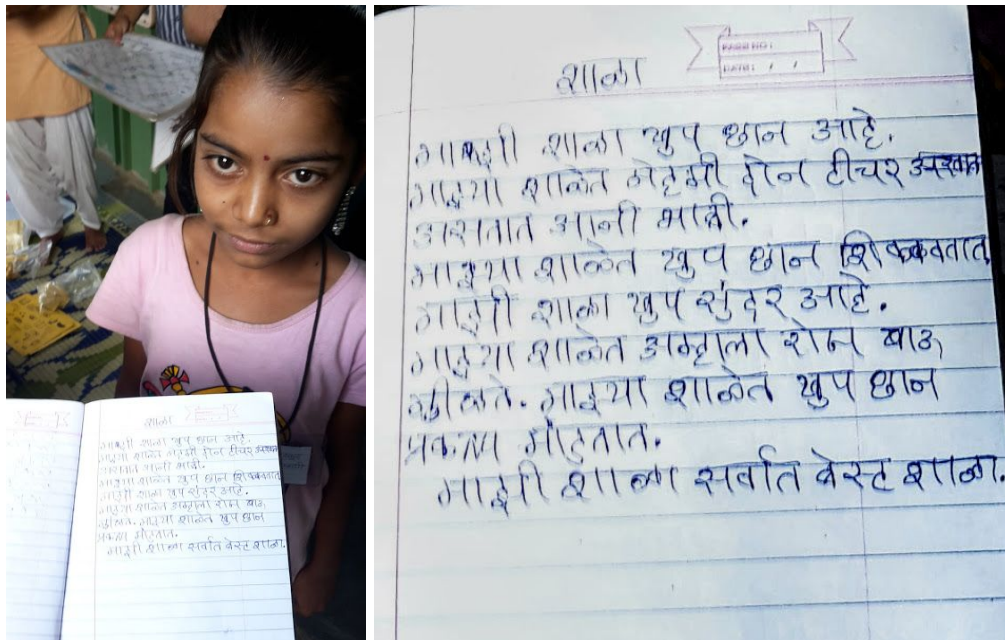 PAGE NO:
DATE: / /
शाळा
माझी शाळा खुप छान आहे.
माझ्या शाळेत नेहमी दोन टीचर
असतात आनी भाजी.
माझ्या शाळेत खुप छान शिकवतात
माझी शाळा खुप सुंदर आहे.
माझ्या शाळेत अम्हाला रोज खाऊ
माझ्या शाळेत खुप छान
माझी शाळा सर्वात बेस्ट शाळा.